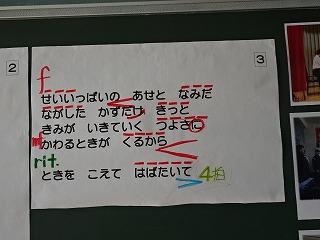 2
3
f
せいいっぱいの あせと なみだ
ながした かずだけ きっと
きみが いきていく つよさに
mf
かわるときが くるから
rit.
ときを こえて はばたいて 4拍